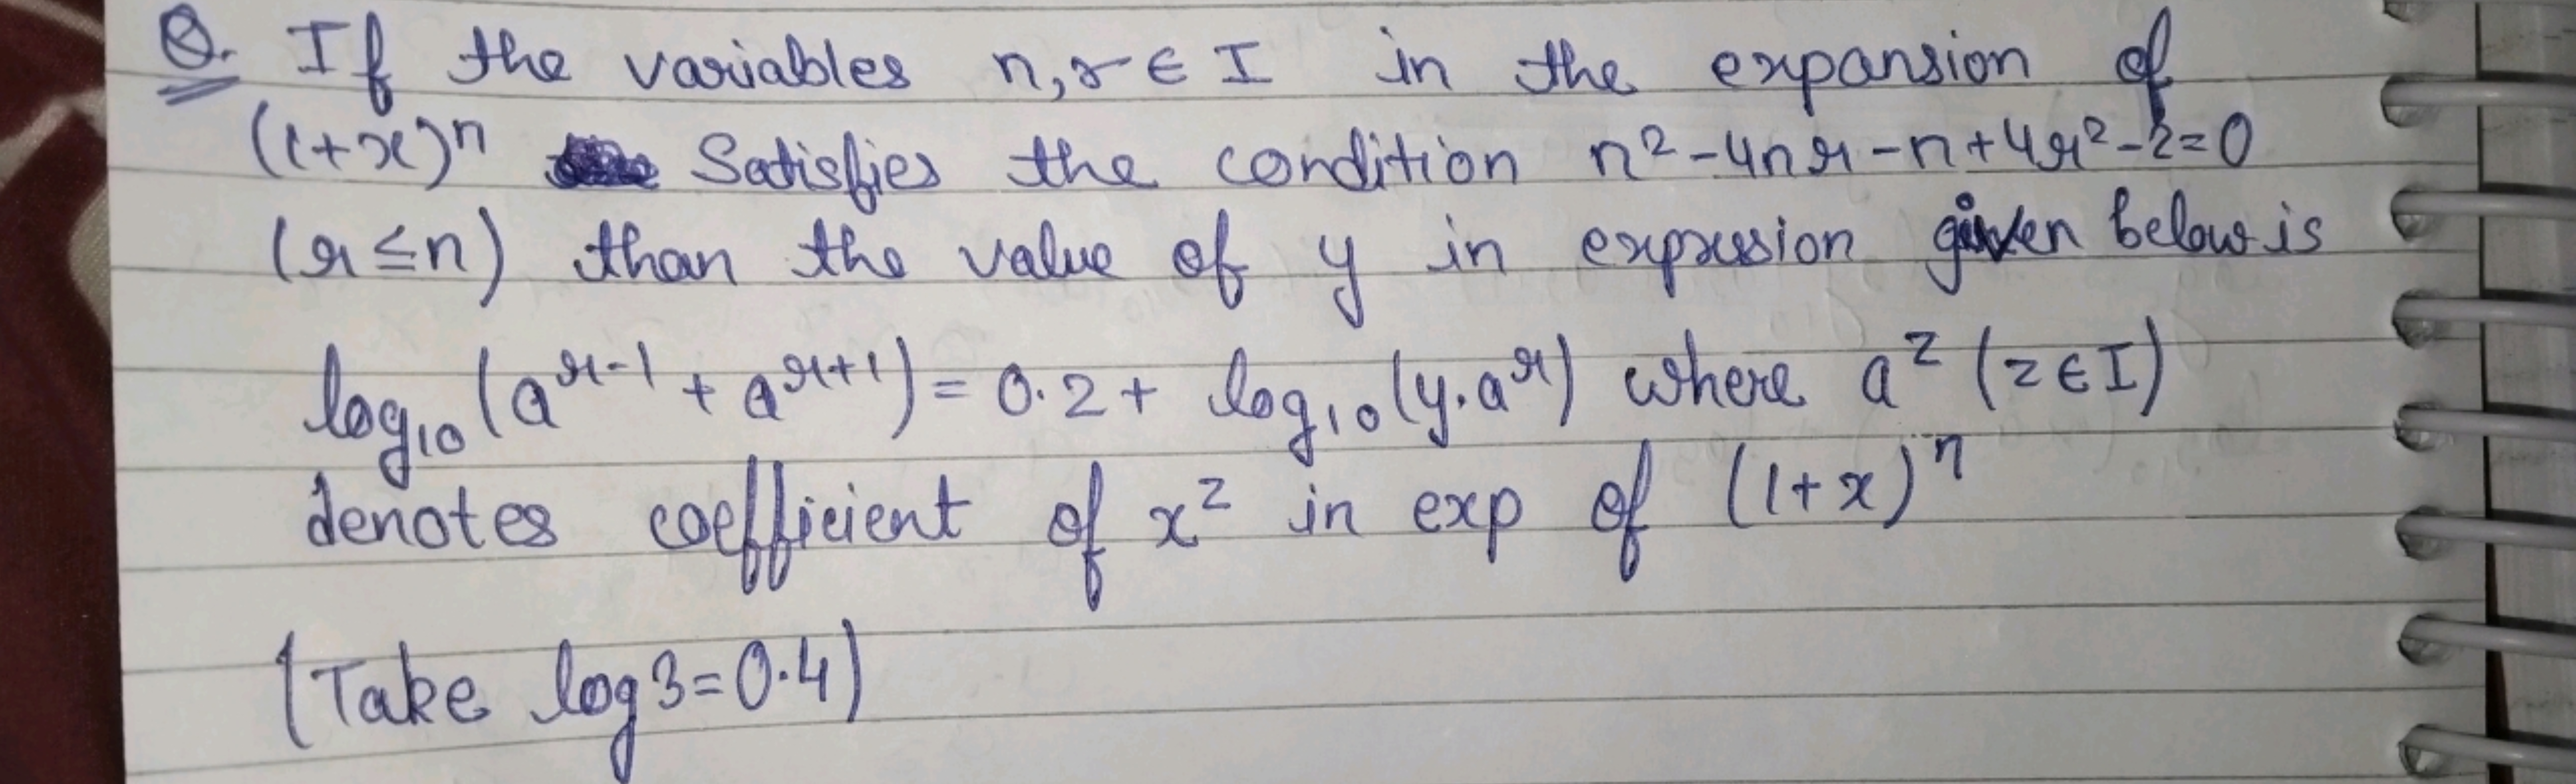 Q. If the variables n, r ∈ I in the expansion of
(1+x)ⁿ Satisfies the condition n² - 4nr - n + 4r² - 2 = 0
(r ≤ n) than the value of y in expression given below is
log₁₀(a^(r-1) + a^(r+1)) = 0.2 + log₁₀(y.a^r) where a^z (z ∈ I)
denotes coefficient of x^z in exp of (1+x)^n
(Take log 3 = 0.4)